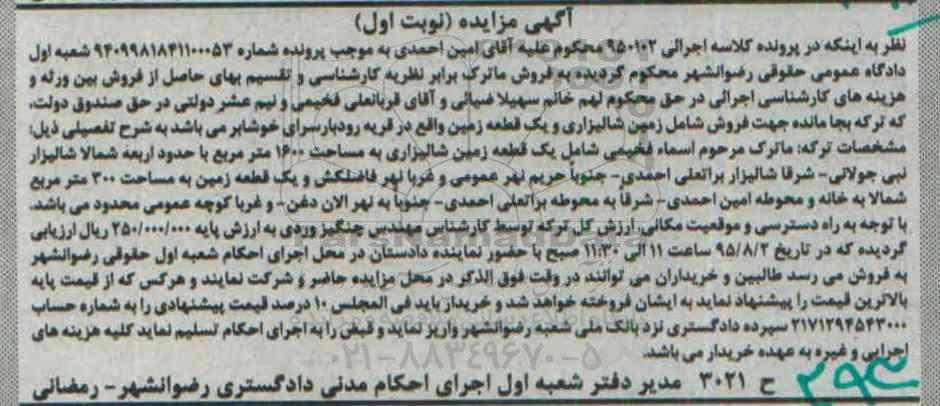 آگهی مزایده (نوبت اول)
نظر به اینکه در پرونده کلاسه اجرائی ۹۵۰۱۰۲ محکوم علیه آقای امین احمدی به موجب پرونده شماره ۹۴۰۹۹۸۱۸۴۱۱۰۰۰۵۳ شعبه اول
دادگاه عمومی حقوقی رضوانشهر محکوم گردیده به فروش ماترک برابر نظریه کارشناسی و تقسیم بهای حاصل از فروش بین ورثه و
هزینه های کارشناسی اجرائی در حق محکوم لهم خانم سهیلا ضیائی و آقای قربانعلی فخیمی و نیم عشر دولتی در حق صندوق دولت،
که ترکه بجا مانده جهت فروش شامل زمین شالیزاری و یک قطعه زمین واقع در قریه رودبارسرای خوشابر می باشد به شرح تفصیلی ذیل:
مشخصات ترکه: ماترک مرحوم اسماء فخیمی شامل یک قطعه زمین شالیزاری به مساحت ۱۶۰۰ متر مربع با حدود اربعه شمالا شالیزار
نبی جولائی- شرقا شالیزار براتعلی احمدی- جنوباً حریم نهر عمومی و غربا نهر فاضلکش و یک قطعه زمین به مساحت ۳۰۰ متر مربع
شمالا به خانه و محوطه امین احمدی- شرقاً به محوطه براتعلی احمدی- جنوباً به نهر الان دغن- و غربا کوچه عمومی محدود می باشد.
با توجه به راه دسترسی و موقعیت مکانی ارزش کل ترکه توسط کارشناس مهندس چنگیز وردی به ارزش پایه ۲۵۰/۰۰۰/۰۰۰ ریال ارزیابی
گردیده که در تاریخ ۹۵/۸/۲ ساعت ۱۱ الی ۱۱:۳۰ صبح با حضور نماینده دادستان در محل اجرای احکام شعبه اول حقوقی رضوانشهر
به فروش می رسد طالبین و خریداران می توانند در وقت فوق الذکر در محل مزایده حاضر و شرکت نمایند و هرکس که از قیمت پایه
بالاترین قیمت را پیشنهاد نماید به ایشان فروخته خواهد شد و خریدار باید فی المجلس ۱۰ درصد قیمت پیشنهادی را به شماره حساب
۲۱۷۱۲۹۴۵۴۳۰۰۰ سپرده دادگستری نزد بانک ملی شعبه رضوانشهر واریز نماید و قبض را به اجرای احکام تسلیم نماید کلیه هزینه های
اجرایی و غیره به عهده خریدار می باشد.
۰۲۱-۸۸۳۴۹۶۷۰-۵
ح ۳۰۲۱ مدیر دفتر شعبه اول اجرای احکام مدنی دادگستری رضوانشهر- رمضانی